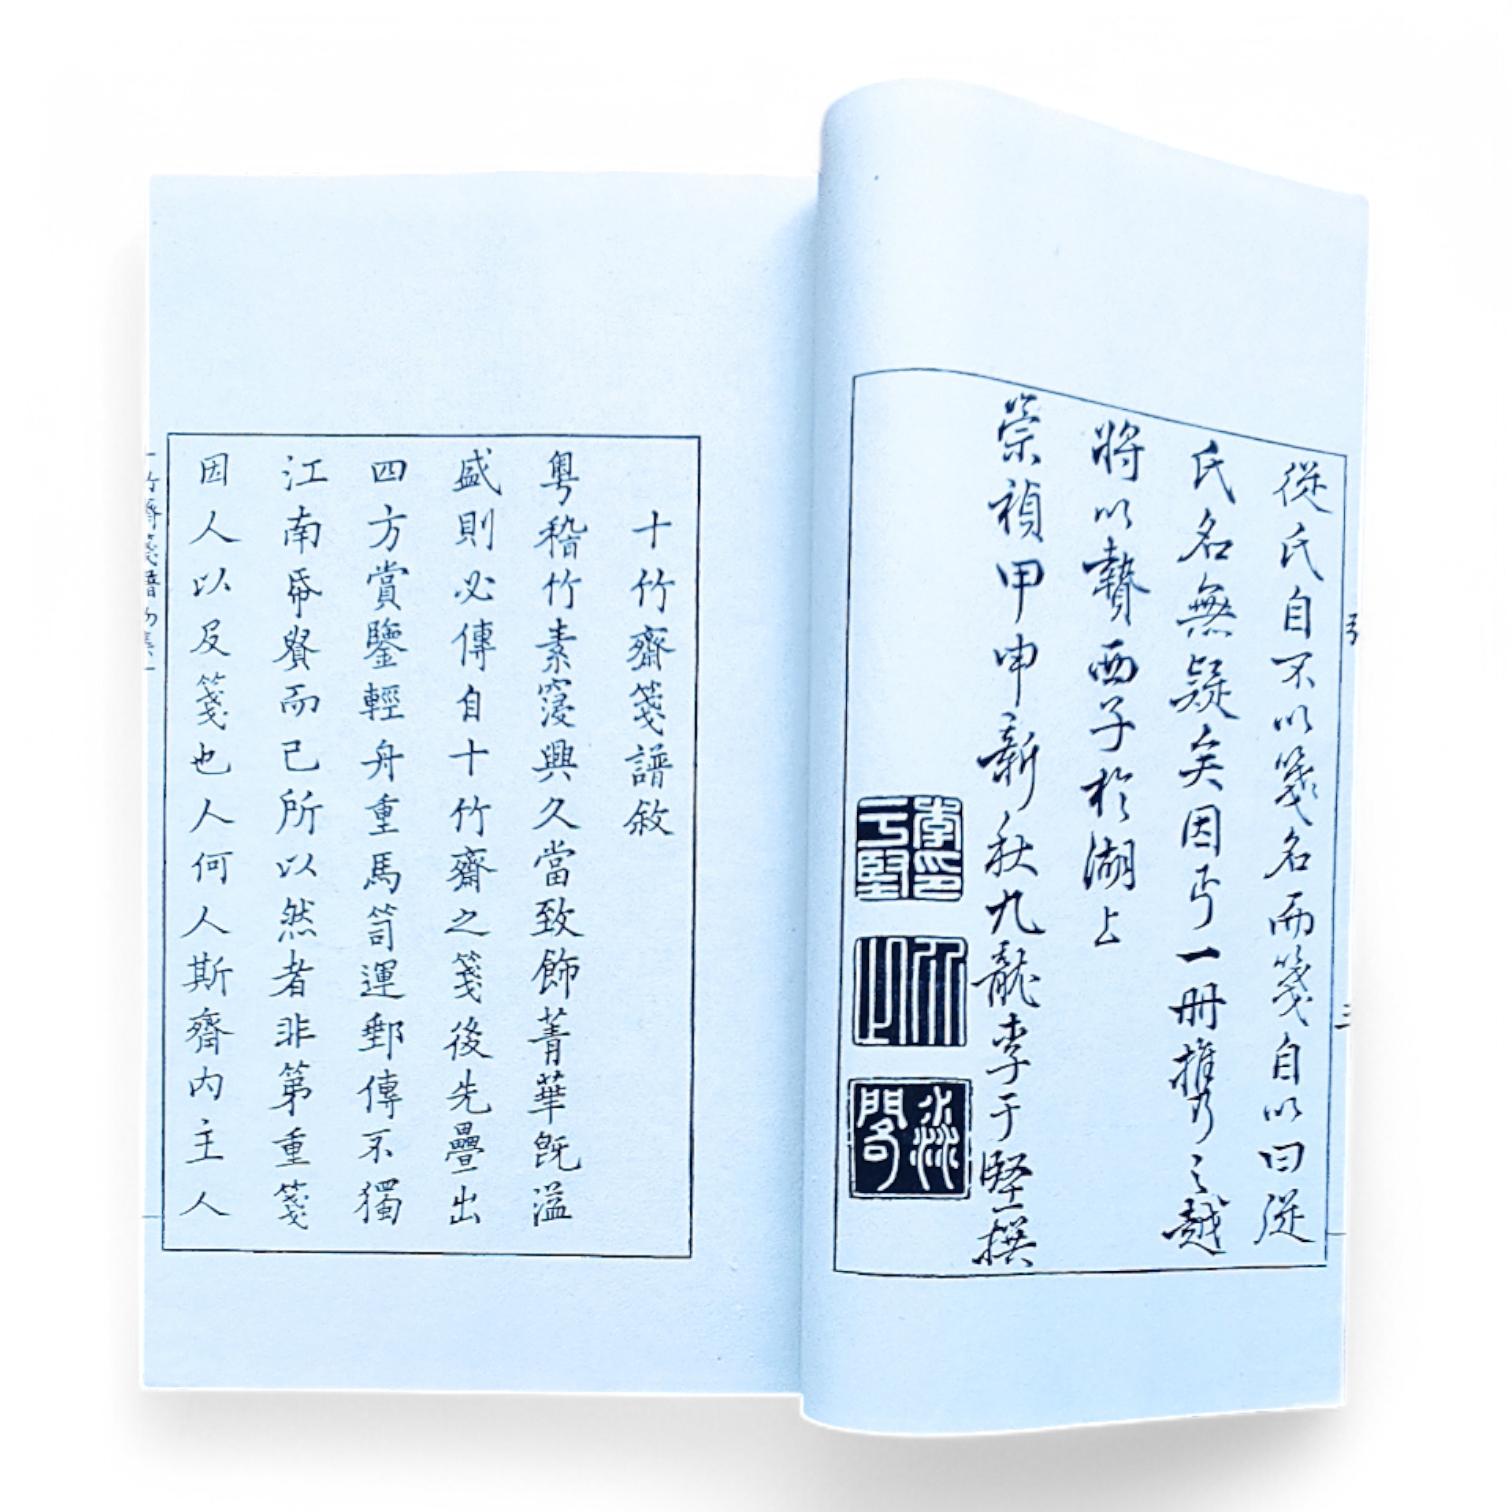 從氏自不以箋名而箋自以曰從
氏名無疑矣因丐一冊攜之越
將以贄西子於湖上
崇禎甲申新秋九龍李于堅撰
李于堅印
十竹齋箋譜敘
粵稽竹素寖興久當致飾菁華旣溢
盛則必傳自十竹齋之箋後先疊出
四方賞鑒輕舟重馬笥運郵傳不獨
江南帋貴而已所以然者非第重箋
因人以及箋也人何人斯齋內主人
竹齋箋譜初集